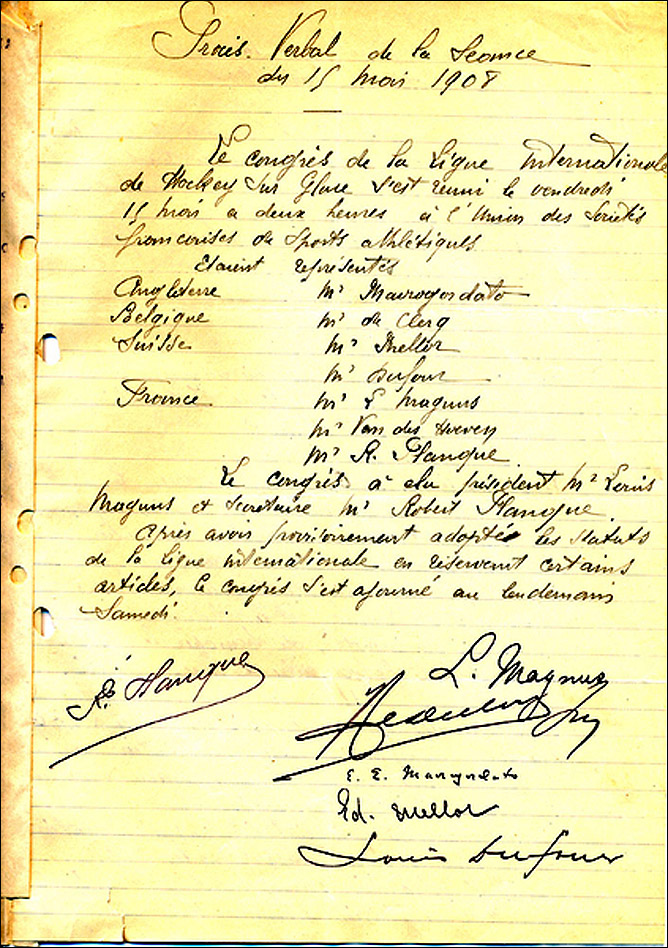 Procès-Verbal de la Seance
du 15 mai 1908
Le congrès de la Ligue Internationale
de Hockey sur Glace s'est réuni le vendredi
15 mai a deux heures à l'Union des Societés
francaises de Sports athlétiques
Etaient représentés
Angleterre Mr Mavrogordato
Belgique Mr de Clerq
Suisse Mr Mellor
Mr Dufour
France Mr L Magnus
Mr Van der Hoeven
Mr R. Planque
Le congrès à élu président Mr Louis
Magnus et secrétaire Mr Robert Planque
Après avoir provisoirement adopté les statuts
de la Ligue internationale en réservant certains
articles, le congrès s'est ajourné au lendemain
Samedi.
R. Planque
L. Magnus
E. E. Mavrogordato
Ed. Mellor
Louis Dufour